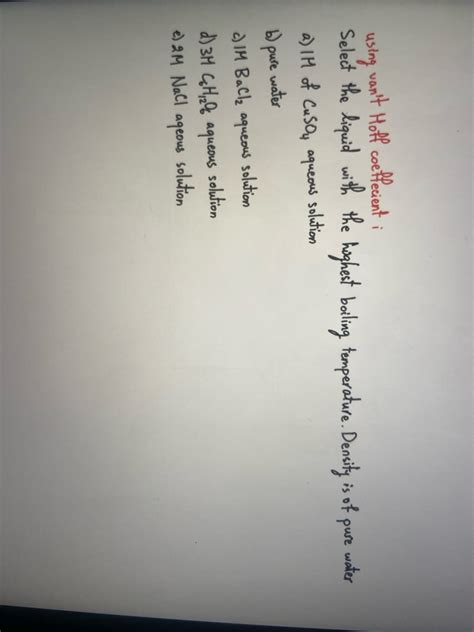 using van't Hoff coeffecient i
Select the liquid with the highest boiling temperature. Density is of pure water
a) 1M of CuSO₄ aqueous solution
b) pure water
c) 1M BaCl₂ aqueous solution
d) 3M C₆H₁₂O₆ aqueous solution
e) 2M NaCl aqeous solution